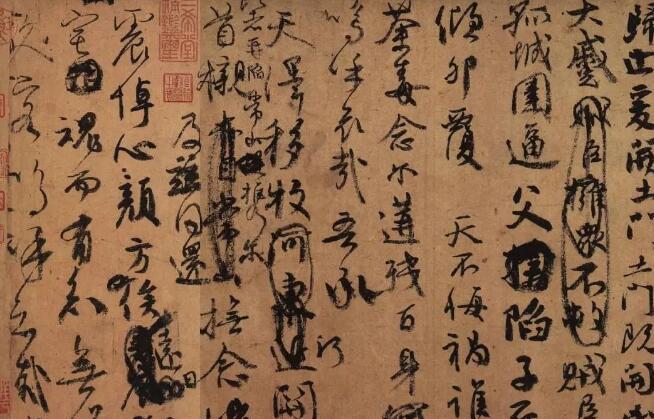 歸止爰開土門土門既開
大蹙賊臣擁衆不救賊臣
孤城圍逼父陷子死
傾卵覆天不悔禍誰
荼毒念爾遘殘百身何
嗚呼哀哉吾承
天澤移牧河東近關
者再陷常山攜爾
首櫬及茲同還撫念摧
震悼心顏方俟遠日
宅魂而有知無嗟
久客嗚呼哀哉